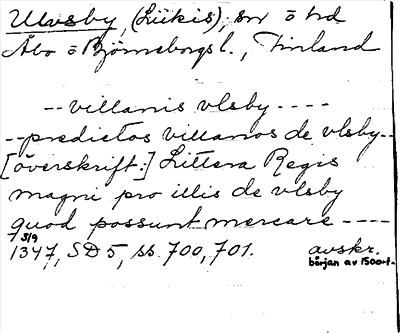 Ulvsby, (Liikis), sn o hd
Åbo o Björneborgs l., Finland
-- villanis vlsby ----
-- predictos villanos de vlsby--
[överskrift:] Littera Regis
magni pro illis de vlsby
quod possunt mercare ----
1347 5/9, SD 5, ss. 700, 701. avskr.
början av 1500-t.